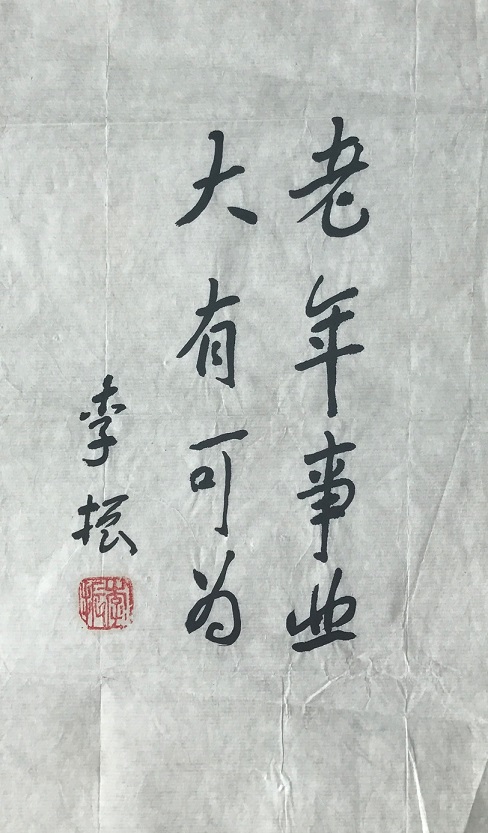 老年事业
大有可为
李振